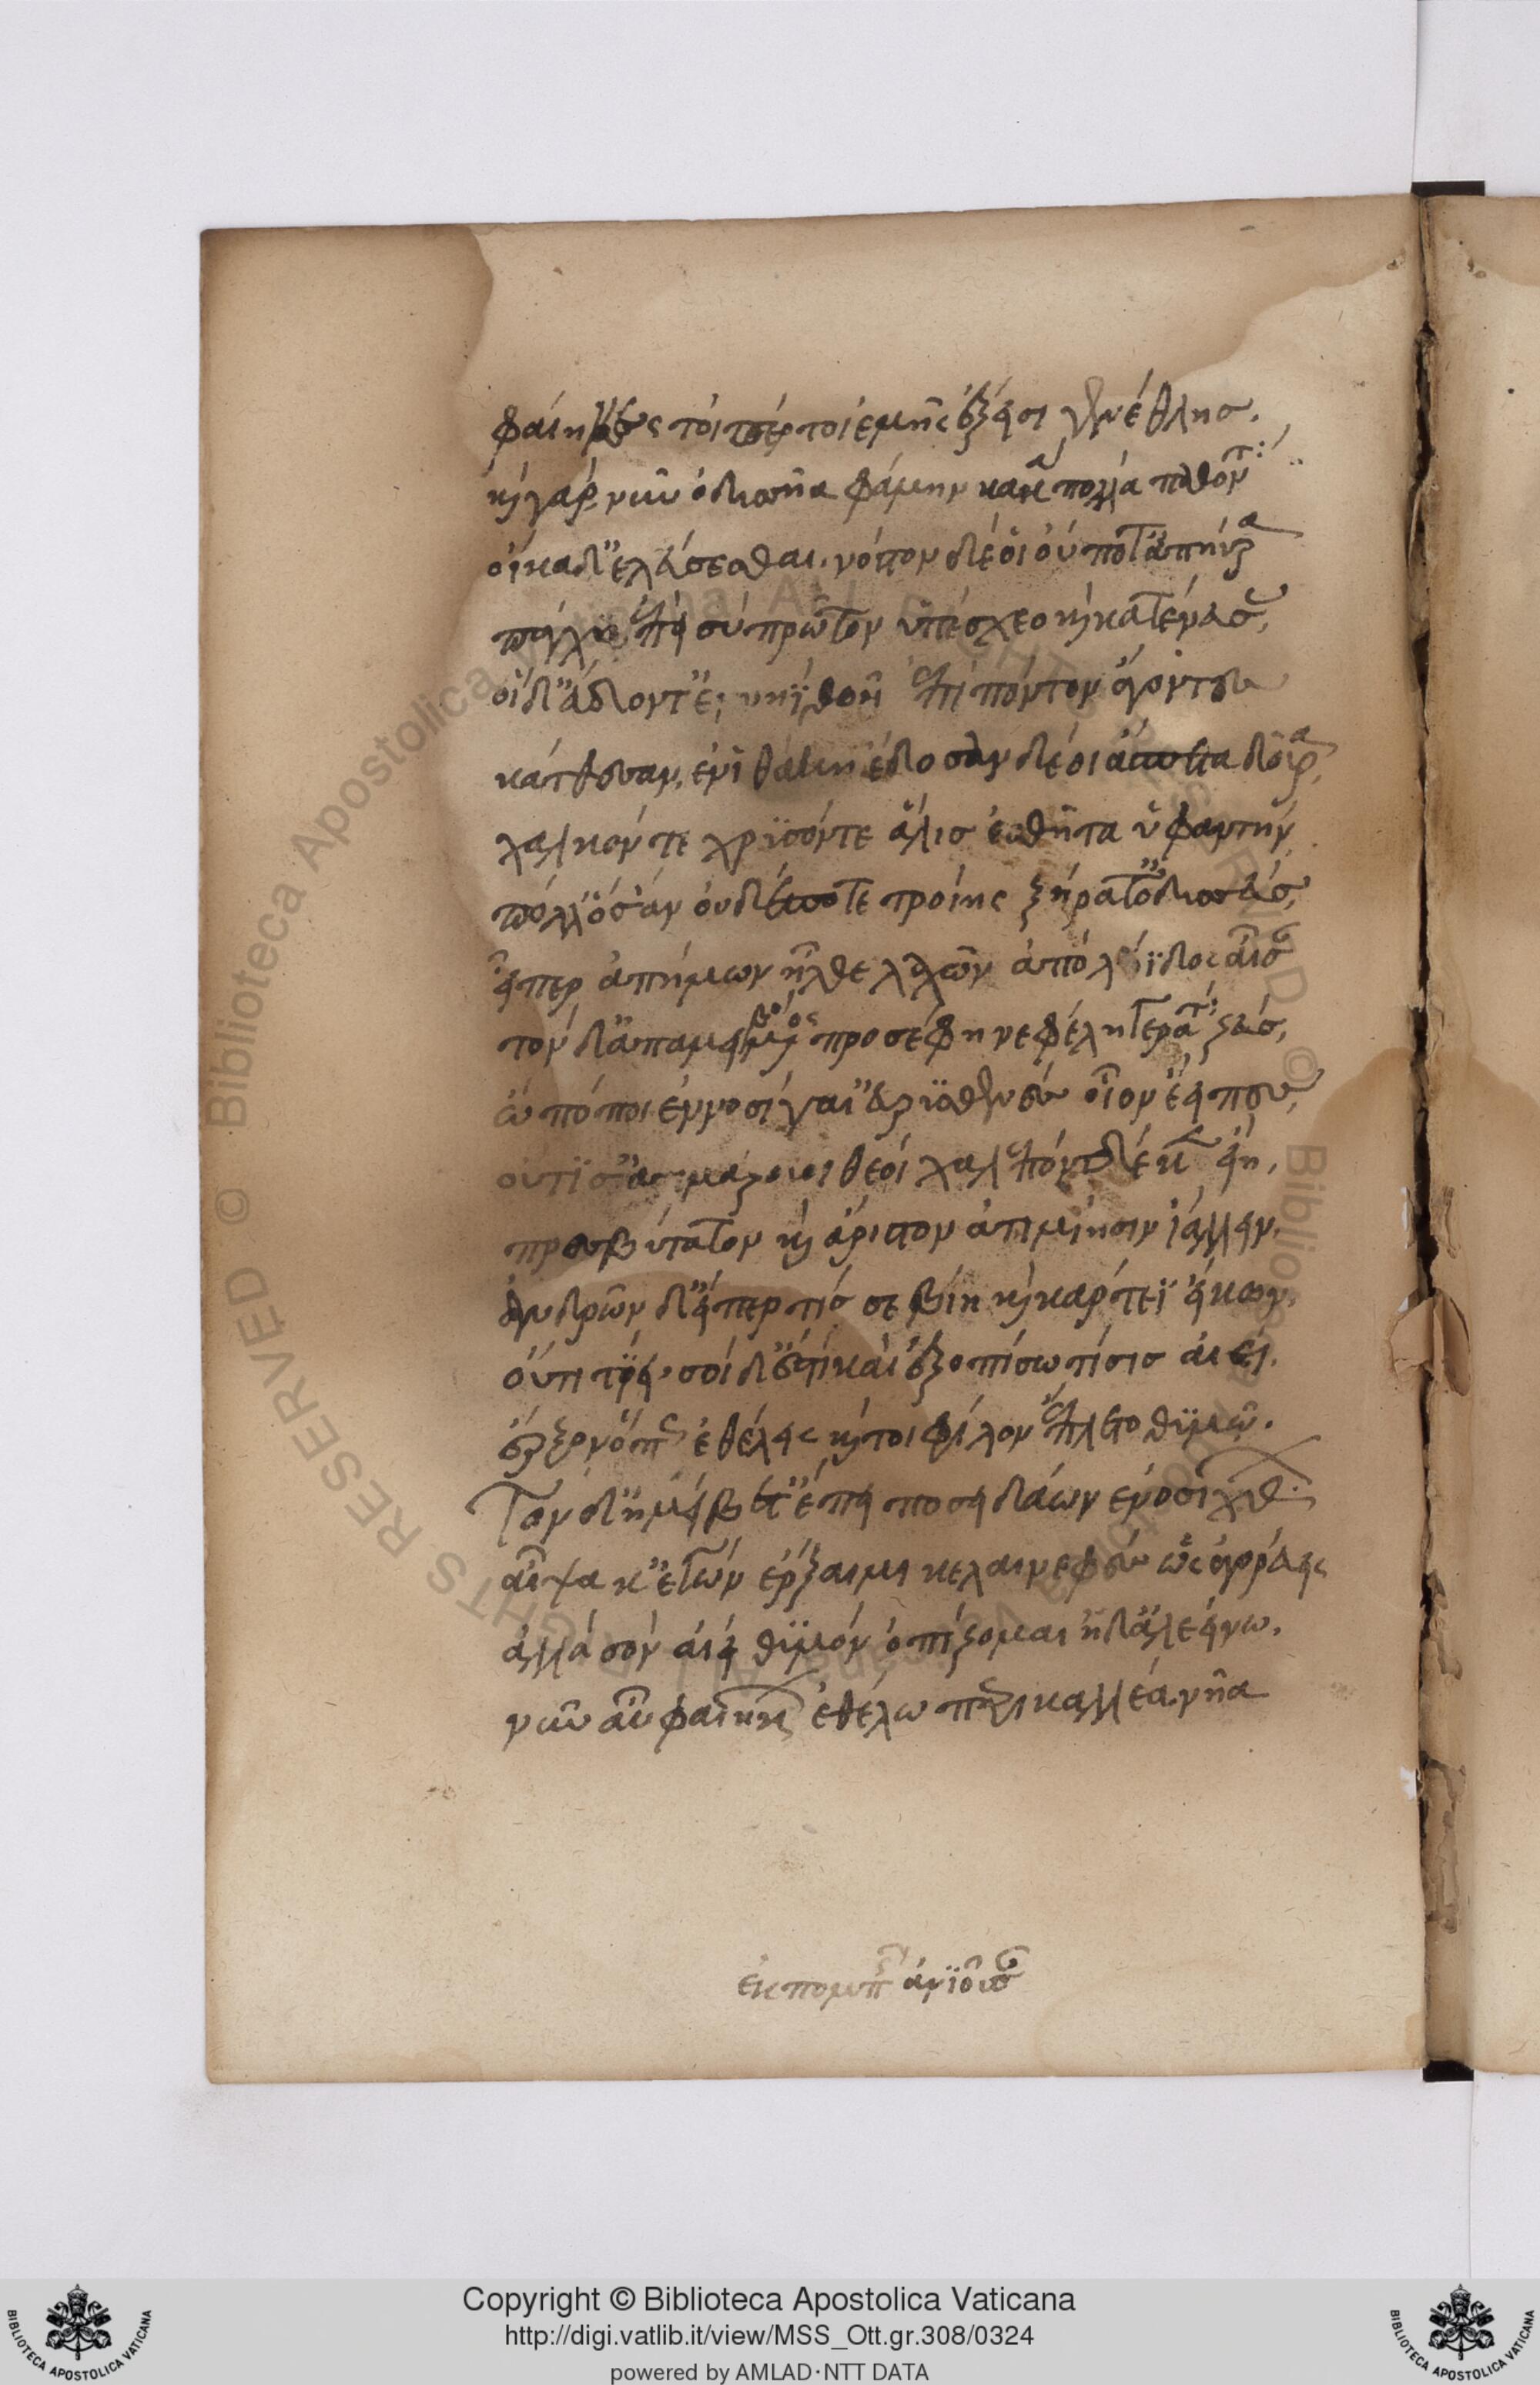 φαίηκες τοίπέρ τοι ἐμῆς ἔξεισι γενέθλησ.
κ γὰρ νῦν ὀδυσῆα φάμην κακὰ πολλὰ παθόντ
οἴκαδ' ἐλεύσεσθαι. νόστον δέ οἱ οὔποτ' ἀπηύρα
πάγχυ ἐπεὶ σὺ πρῶτον ὑπέσχεο κ κατένευσ.
οἱ δ' εὕδοντ' ἐν νηῒ θοῆ ἐπὶ πόντον ἄγοντες
κάτθεσαν, εἰν ἰθάκη ἔδοσαν δέ οἱ ἄσπετα δῶρα
χαλκόν τε χρυσόν τε ἅλισ ἐσθῆτα ὑφαντὴν
πόλλ' ὅσ' ἂν οὐδέποτε τροίης ἐξήρατ' ὀδυσεύσ,
εἴπερ ἀπήμων ἦλθε λαχὼν ἀπὸ ληΐδος αἶσαν
τὸν δ' ἀπαμειβόμενος προσέφη νεφέληγερέτα ζεύσ,
ὦ πόποι ἐννοσίγαι' εὐρυσθενὲς οἷον ἔειπες,
οὔτι σ' ἀτιμάζουσι θεοί χαλεπὸν δέ κεν εἴη,
πρεσβύτατον κ ἄριστον ἀτιμίησιν ἰάλλειν.
ἀνδρῶν δ' εἴπερ τίσ σε βίη κ κάρτεϊ εἴκων
οὔτι τίει, σοὶ δ' ἐστὶ καὶ ἐξοπίσω τίσισ αἰεί.
ἔρξον ὅπως ἐθέλεις κ τοι φίλον ἔπλετο θυμῶ.
Τὸν δ' ἠμείβετ' ἔπειτα ποσειδάων ἐνοσίχθ.
αἶψα κ' ἐγὼν ἔρξαιμι κελαινεφὲς ὡς ἀγορεύεις
ἀλλὰ σὸν αἰεὶ θυμὸν ὀπίζομαι ἠδ' ἀλεείνω.
νῦν αὖ φαιήκων ἐθέλω περικαλλέα νῆα
ἐκ πομπῆς ἀνιοῦσαν
Copyright © Biblioteca Apostolica Vaticana
http://digi.vatlib.it/view/MSS_Ott.gr.308/0324
powered by AMLAD·NTT DATA